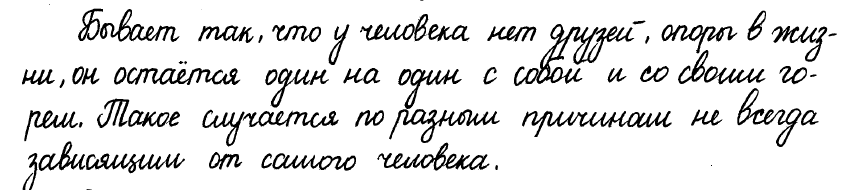 Бывает так, что у человека нет друзей, опоры в жиз-
ни, он остаётся один на один с собой и со своим го-
рем. Такое случается по разным причинам не всегда
зависящим от самого человека.